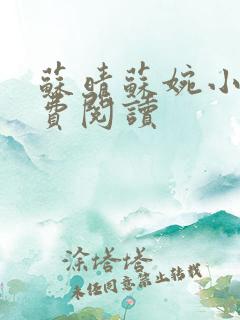 蘇晴蘇婉小
費閱讀
涂塔塔
未经同意禁止转载